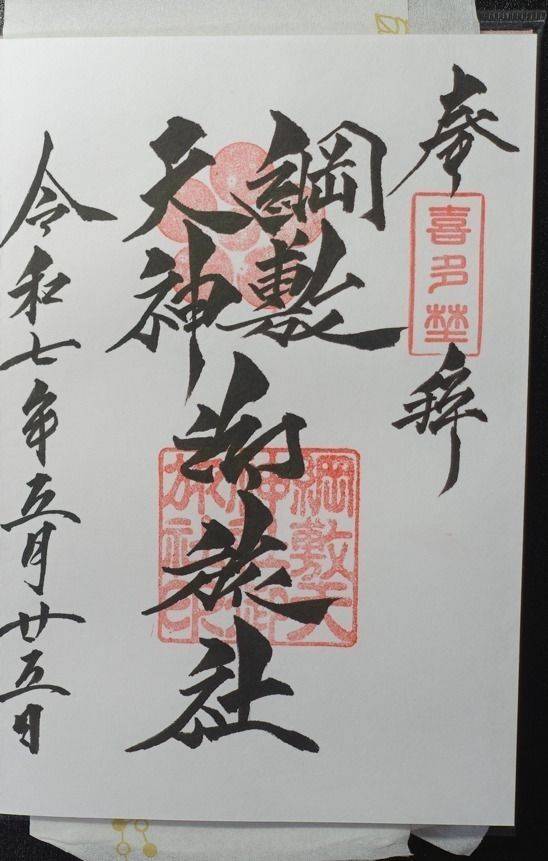 奉拝
喜多埜
綱敷
天神
御旅社
綱敷天
神社御
旅社印
令和七年五月廿五日